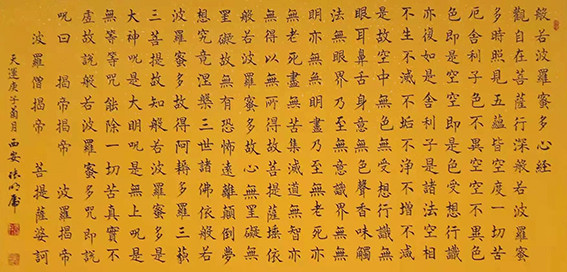 般若波羅蜜多心經
觀自在菩薩行深般若波羅蜜
多時照見五蘊皆空度一切苦
厄舍利子色不異空空不異色
色即是空空即是色受想行識
亦復如是舍利子是諸法空相
不生不滅不垢不淨不增不減
是故空中無色無受想行識無
眼耳鼻舌身意無色聲香味觸
法無眼界乃至無意識界無無
明亦無無明盡乃至無老死亦
無老死盡無苦集滅道無智亦
無得以無所得故菩提薩埵依
般若波羅蜜多故心無罣礙無
罣礙故無有恐怖遠離顛倒夢
想究竟涅槃三世諸佛依般若
波羅蜜多故得阿耨多羅三藐
三菩提故知般若波羅蜜多是
大神呪是大明呪是無上呪是
無等等呪能除一切苦真實不
虛故說般若波羅蜜多呪即說
呪曰 揭帝揭帝 波羅揭帝
波羅僧揭帝 菩提薩婆訶
天運庚子酉月西安